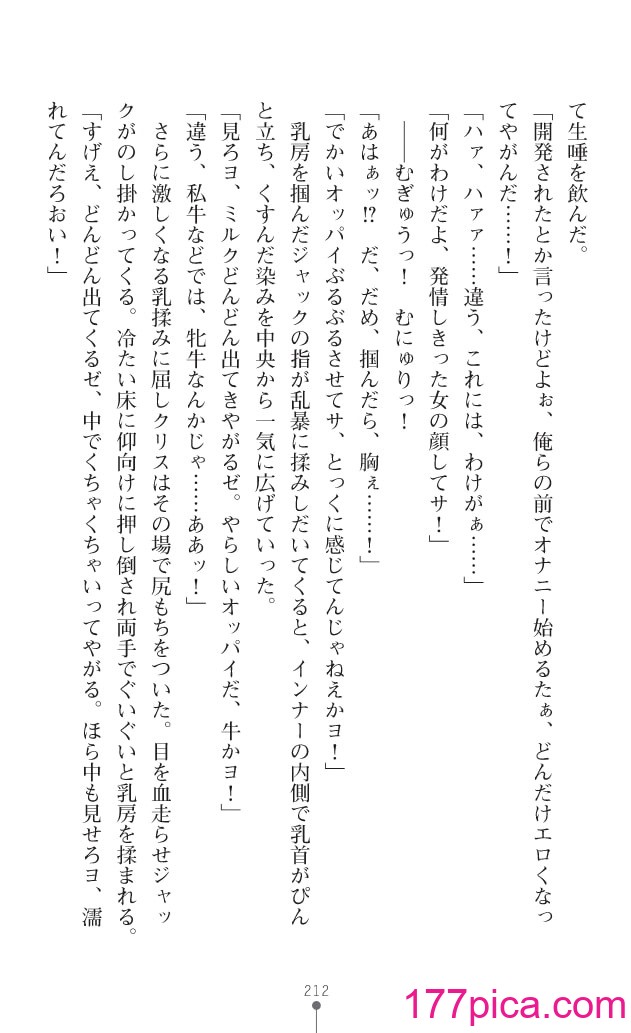 て生唾を飲んだ。
「開発されたとか言ったけどよぉ、俺らの前でオナニー始めるたぁ、どんだけエロくなっ
てやがんだ……！」
「ハァ、ハァァ……違う、これには、わけがぁ……」
「何がわけだよ、発情しきった女の顔してサ！」
――むぎゅうっ！　むにゅりっ！
「あはぁッ!?　だ、だめ、掴んだら、胸ぇ……！」
「でかいオッパイぶるぶるさせてサ、とっくに感じてんじゃねえかヨ！」
乳房を掴んだジャックの指が乱暴に揉みしだいてくると、インナーの内側で乳首がぴん
と立ち、くすんだ染みを中央から一気に広げていった。
「見ろヨ、ミルクどんどん出てきやがるゼ。やらしいオッパイだ、牛かヨ！」
「違う、私牛などでは、牝牛なんかじゃ……ああッ！」
さらに激しくなる乳揉みに屈しクリスはその場で尻もちをついた。目を血走らせジャッ
クがのし掛かってくる。冷たい床に仰向けに押し倒され両手でぐいぐいと乳房を揉まれる。
「すげえ、どんどん出てくるゼ、中でくちゃくちゃいってやがる。ほら中も見せろヨ、濡
れてんだろおい！」
212
177pica.com